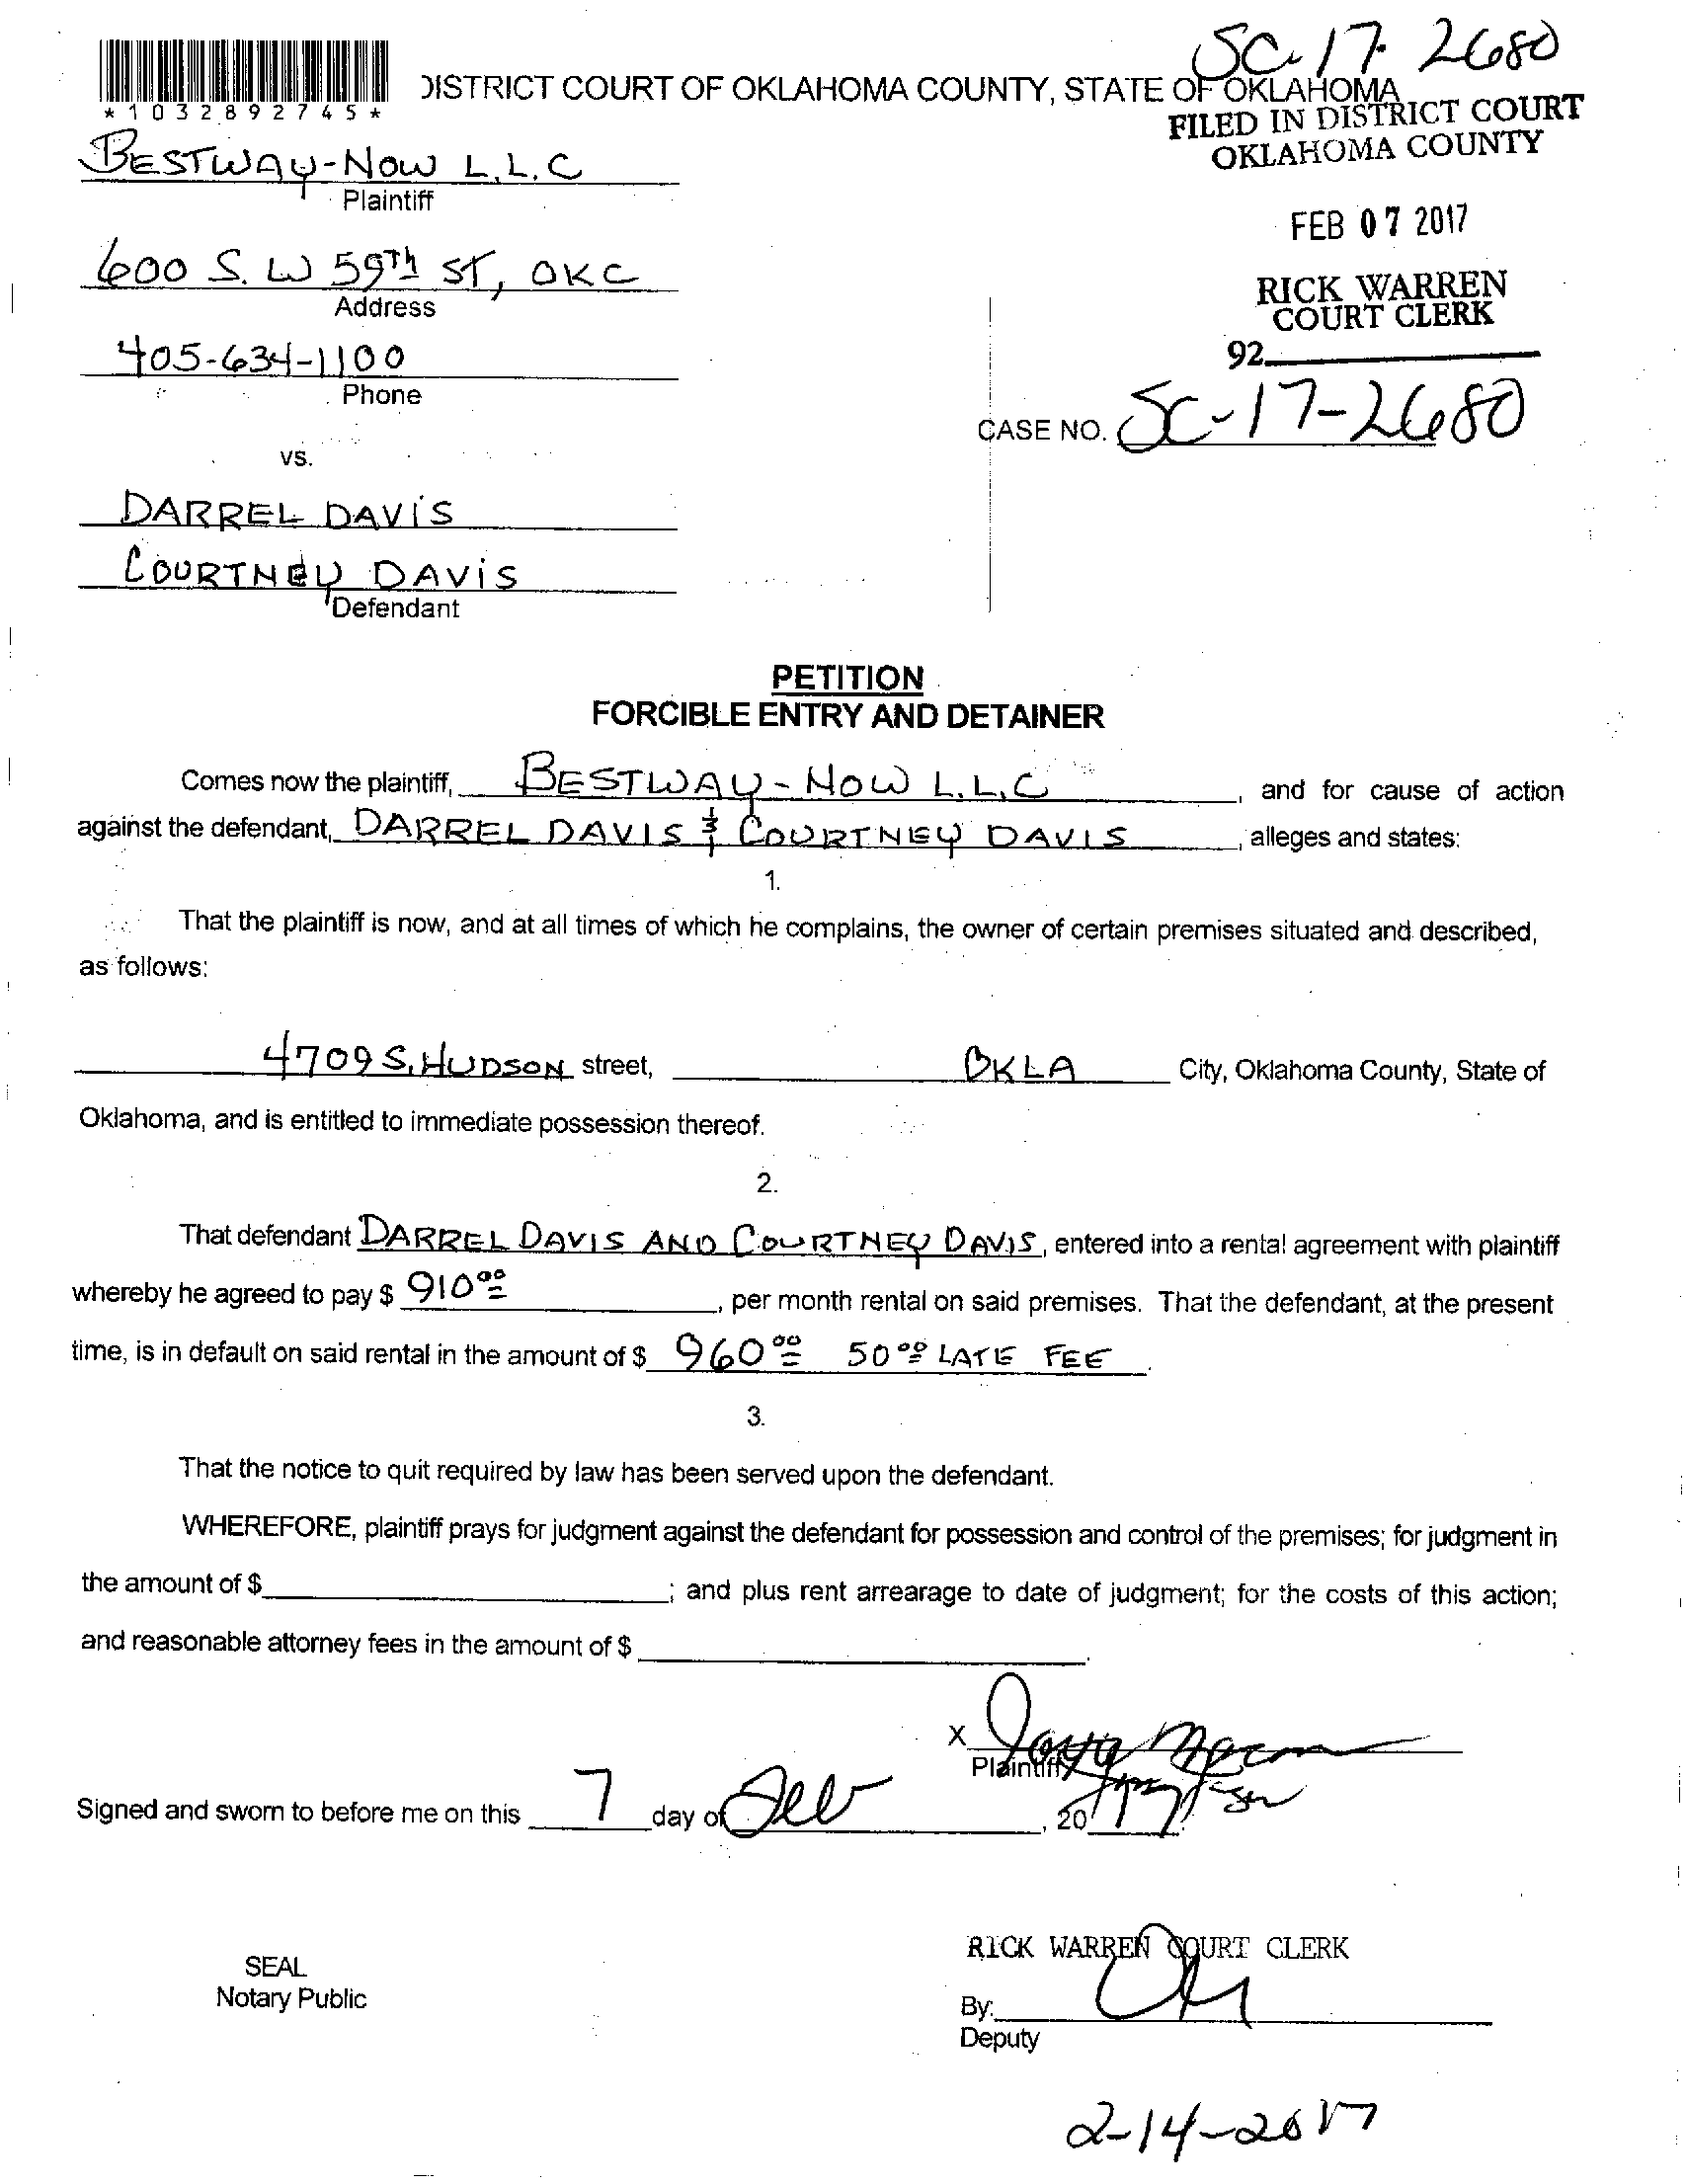 SC-17-2680
*1032892745*
DISTRICT COURT OF OKLAHOMA COUNTY, STATE OF OKLAHOMA
FILED IN DISTRICT COURT
OKLAHOMA COUNTY
BESTWAY-NOW L.L.C
Plaintiff
FEB 07 2017
600 S. W 59TH ST, OKC
Address
RICK WARREN
COURT CLERK
405-634-1100
Phone
92
CASE NO. SC-17-2680
vs.
DARREL DAVIS
COURTNEY DAVIS
Defendant
PETITION
FORCIBLE ENTRY AND DETAINER
Comes now the plaintiff, BESTWAY-NOW L.L.C, and for cause of action
against the defendant, DARREL DAVIS & COURTNEY DAVIS, alleges and states:
1.
That the plaintiff is now, and at all times of which he complains, the owner of certain premises situated and described,
as follows:
4709 S. HUDSON street, OKLA City, Oklahoma County, State of
Oklahoma, and is entitled to immediate possession thereof.
2.
That defendant DARREL DAVIS AND COURTNEY DAVIS, entered into a rental agreement with plaintiff
whereby he agreed to pay $ 910 00, per month rental on said premises. That the defendant, at the present
time, is in default on said rental in the amount of $ 960 00 50 00 LATE FEE.
3.
That the notice to quit required by law has been served upon the defendant.
WHEREFORE, plaintiff prays for judgment against the defendant for possession and control of the premises; for judgment in
the amount of $ ; and plus rent arrearage to date of judgment; for the costs of this action;
and reasonable attorney fees in the amount of $ .
X
Plaintiff
Signed and sworn to before me on this 7 day of Feb, 2017.
RICK WARREN COURT CLERK
SEAL
Notary Public
By:
Deputy
2-14-2017